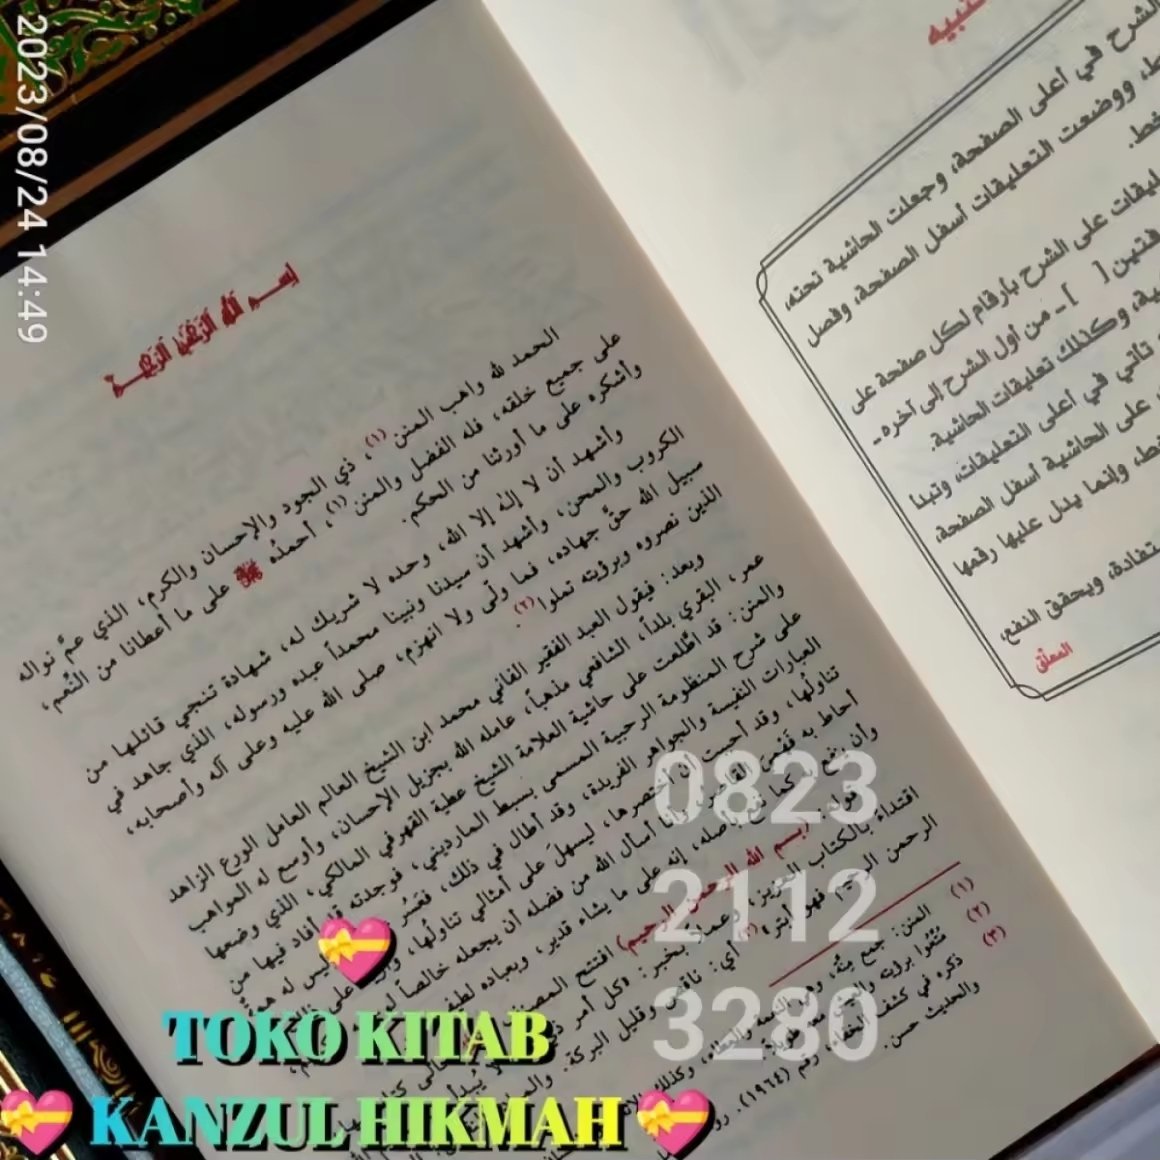 2023/08/24 14:49
بسم الله الرحمن الرحيم
الحمد لله واهب المنن (١)، ذي الجود والإحسان والكرم، الذي عمَّ نواله
على جميع خلقه، فله الفضل والمنن (١)، أحمدُه ﷻ على ما أعطانا من النِّعم،
وأشكره على ما أورثنا من الحكم.
وأشهد أن لا إله إلا الله، وحده لا شريك له، شهادة تنجي قائلها من
الكروب والمحن، وأشهد أن سيدنا ونبينا محمداً عبده ورسوله، الذي جاهد في
سبيل الله حقَّ جهاده، فما ولّى ولا انهزم، صلى الله عليه وعلى آله وأصحابه،
الذين نصروه وبرؤيته تملوا (٢).
وبعد: فيقول العبد الفقير الفاني محمد ابن الشيخ العالم العامل الورع الزاهد
عمر، البقري بلداً، الشافعي مذهباً، عامله الله بجزيل الإحسان، وأوسع له المواهب
والمنن: قد اطَّلعت على حاشية العلامة الشيخ عطية القهوقي المالكي، الذي وضعها
على شرح المنظومة الرحبية المسمى بسبط المارديني، فوجدته قد أفاد فيها من
العبارات النفيسة والجواهر الفريدة، وقد أطال في ذلك، ليس له همة
تناولُها، وقد أحببت أن أختصرها، ليسهل على أمثالي تناولُها،
أحاط به وأنا أسأل الله من فضله أن يجعله خالصاً
وأن ينفع به كما نفع بأصله، إنه على ما يشاء قدير، وبعباده
(بسم الله الرحمن الرحيم) افتتح
اقتداءً بالكتاب العزيز، وعملاً بخبر: «كل أمر
الرحمن الرحيم فهو أبتر» أي: ناقص وقليل البركة.
(١) المنن: جمع مِنَّة، وهي النعمة والعطاء، وكذلك
(٢) مُتِّعوا برؤيته
(٣) ذكره في كشف الخفاء، رقم (١٩٦٤).
والحديث حسن.
تنبيه
الشرح في أعلى الصفحة، وجعلت الحاشية تحته،
ووضعت التعليقات أسفل الصفحة، وفصل
خط.
على الشرح بأرقام لكل صفحة على
[ ] ـ من أول الشرح إلى آخره ـ
وكذلك تعليقات الحاشية.
تأتي في أعلى التعليقات، وتبدأ
على الحاشية أسفل الصفحة،
وإنما يدل عليها رقمها
ويحقق النفع،
المعلّق
0823
2112
3280
TOKO KITAB
KANZUL HIKMAH